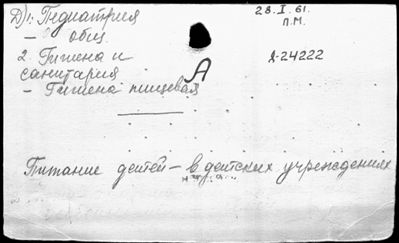 Д) 1. Педиатрия
28.I.61.
– общ.
П.М.
2. Гигиена и
А-24222
санитария
А
– Гигиена пищевая
Питание детей – в детских учреждениях